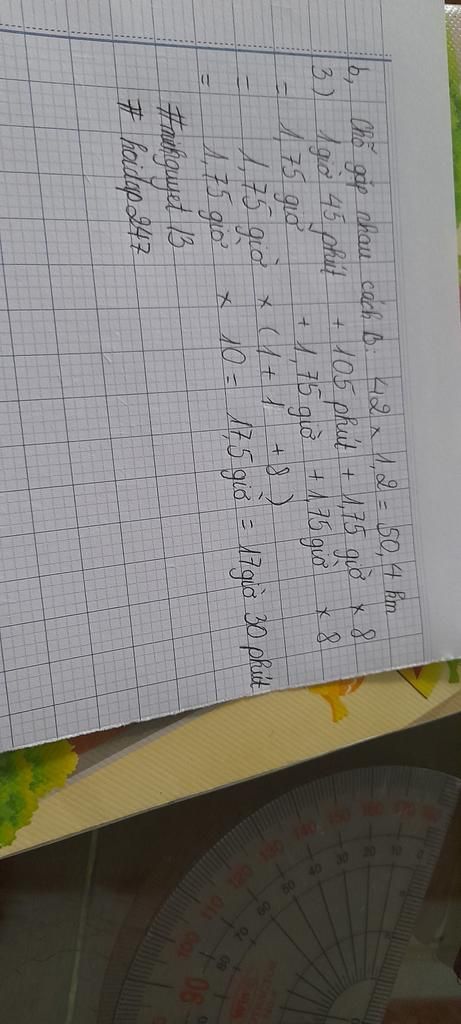 b, Chỗ gặp nhau cách B: 42 × 1,2 = 50,4 km
3) 1 giờ 45 phút + 105 phút + 1,75 giờ × 8
= 1,75 giờ + 1,75 giờ + 1,75 giờ × 8
= 1,75 giờ × (1 + 1 + 8)
= 1,75 giờ × 10 = 17,5 giờ = 17 giờ 30 phút
# hoidap247
180 170 160 150 140 130 120 110 100 90
0 10 20 30 40 50 60 70 80